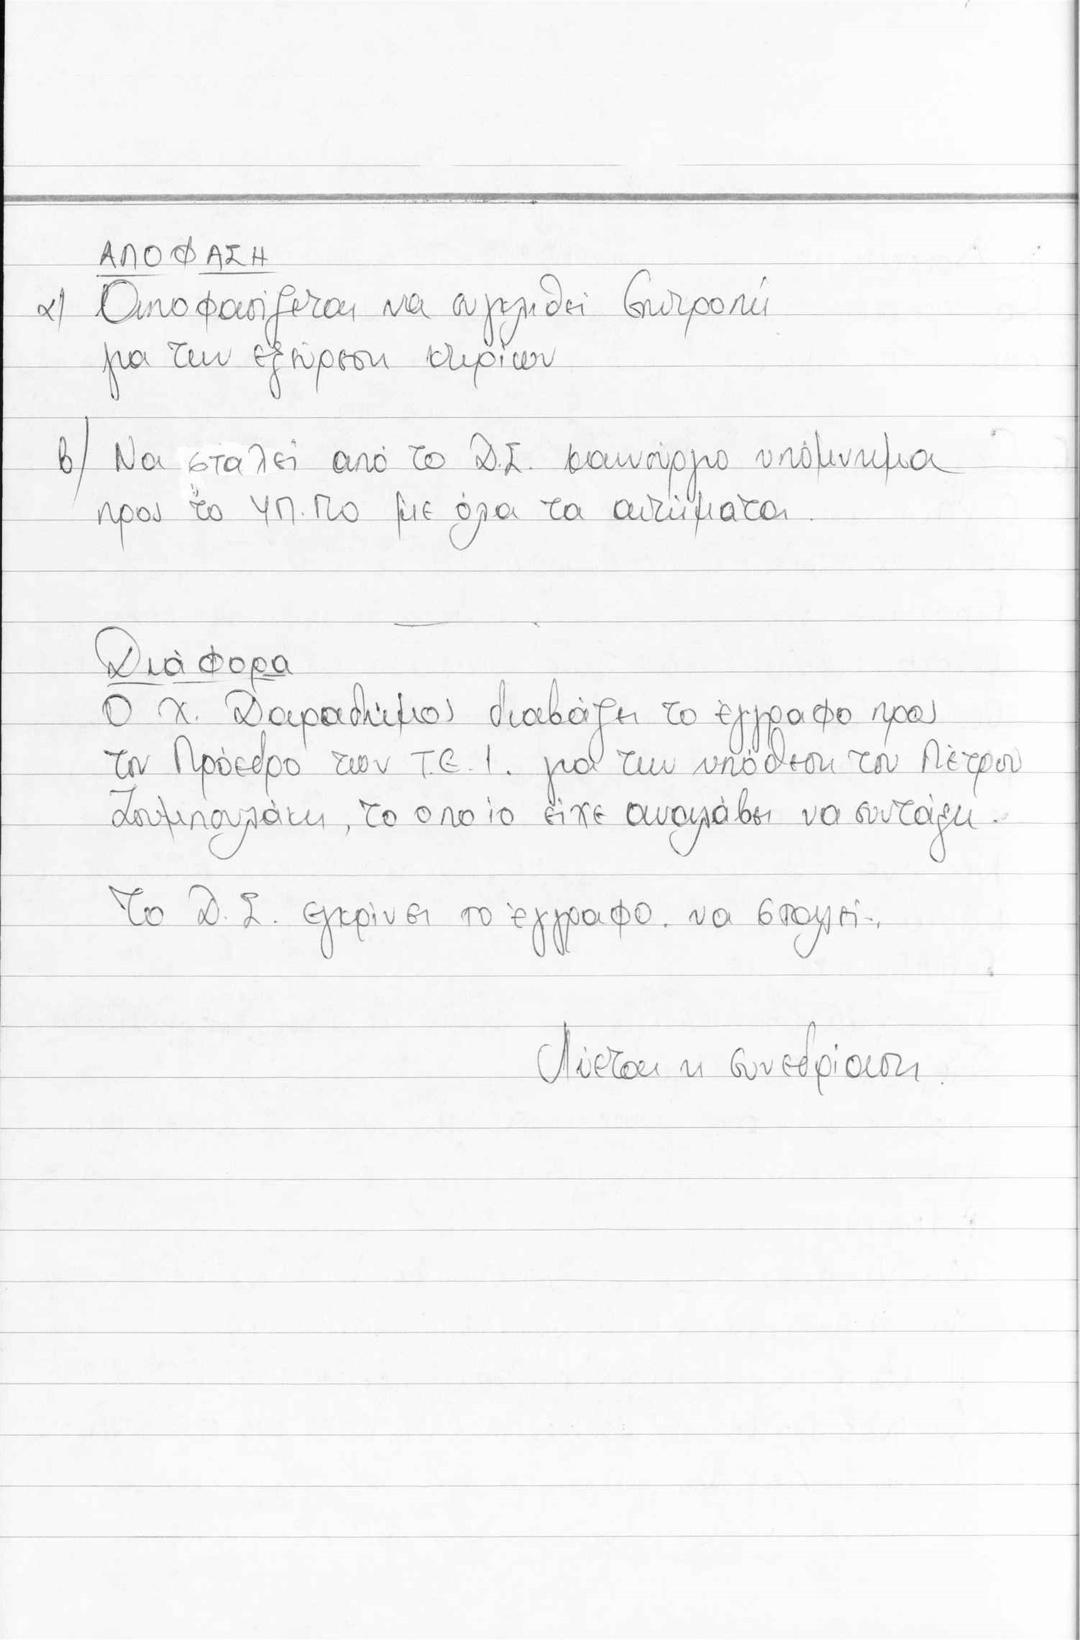 ΑΠΟΦΑΣΗ
α) Αποφασίζεται να συγκληθεί Επιτροπή
για την εξεύρεση κτιρίων
β) Να σταλεί από το Δ.Σ. καινούργιο υπόμνημα
προς το ΥΠ.ΠΟ με όλα τα αιτήματα.
Διάφορα
Ο Χ. Δαραδήμος διαβάζει το έγγραφο προς
τον Πρόεδρο των Τ.Ε.Ι. για την υπόθεση του Πέτρου
Ζουμπουλάκη, το οποίο είχε αναλάβει να συντάξει.
Το Δ.Σ. εγκρίνει το έγγραφο. να σταλεί.
Λύεται η συνεδρίαση.